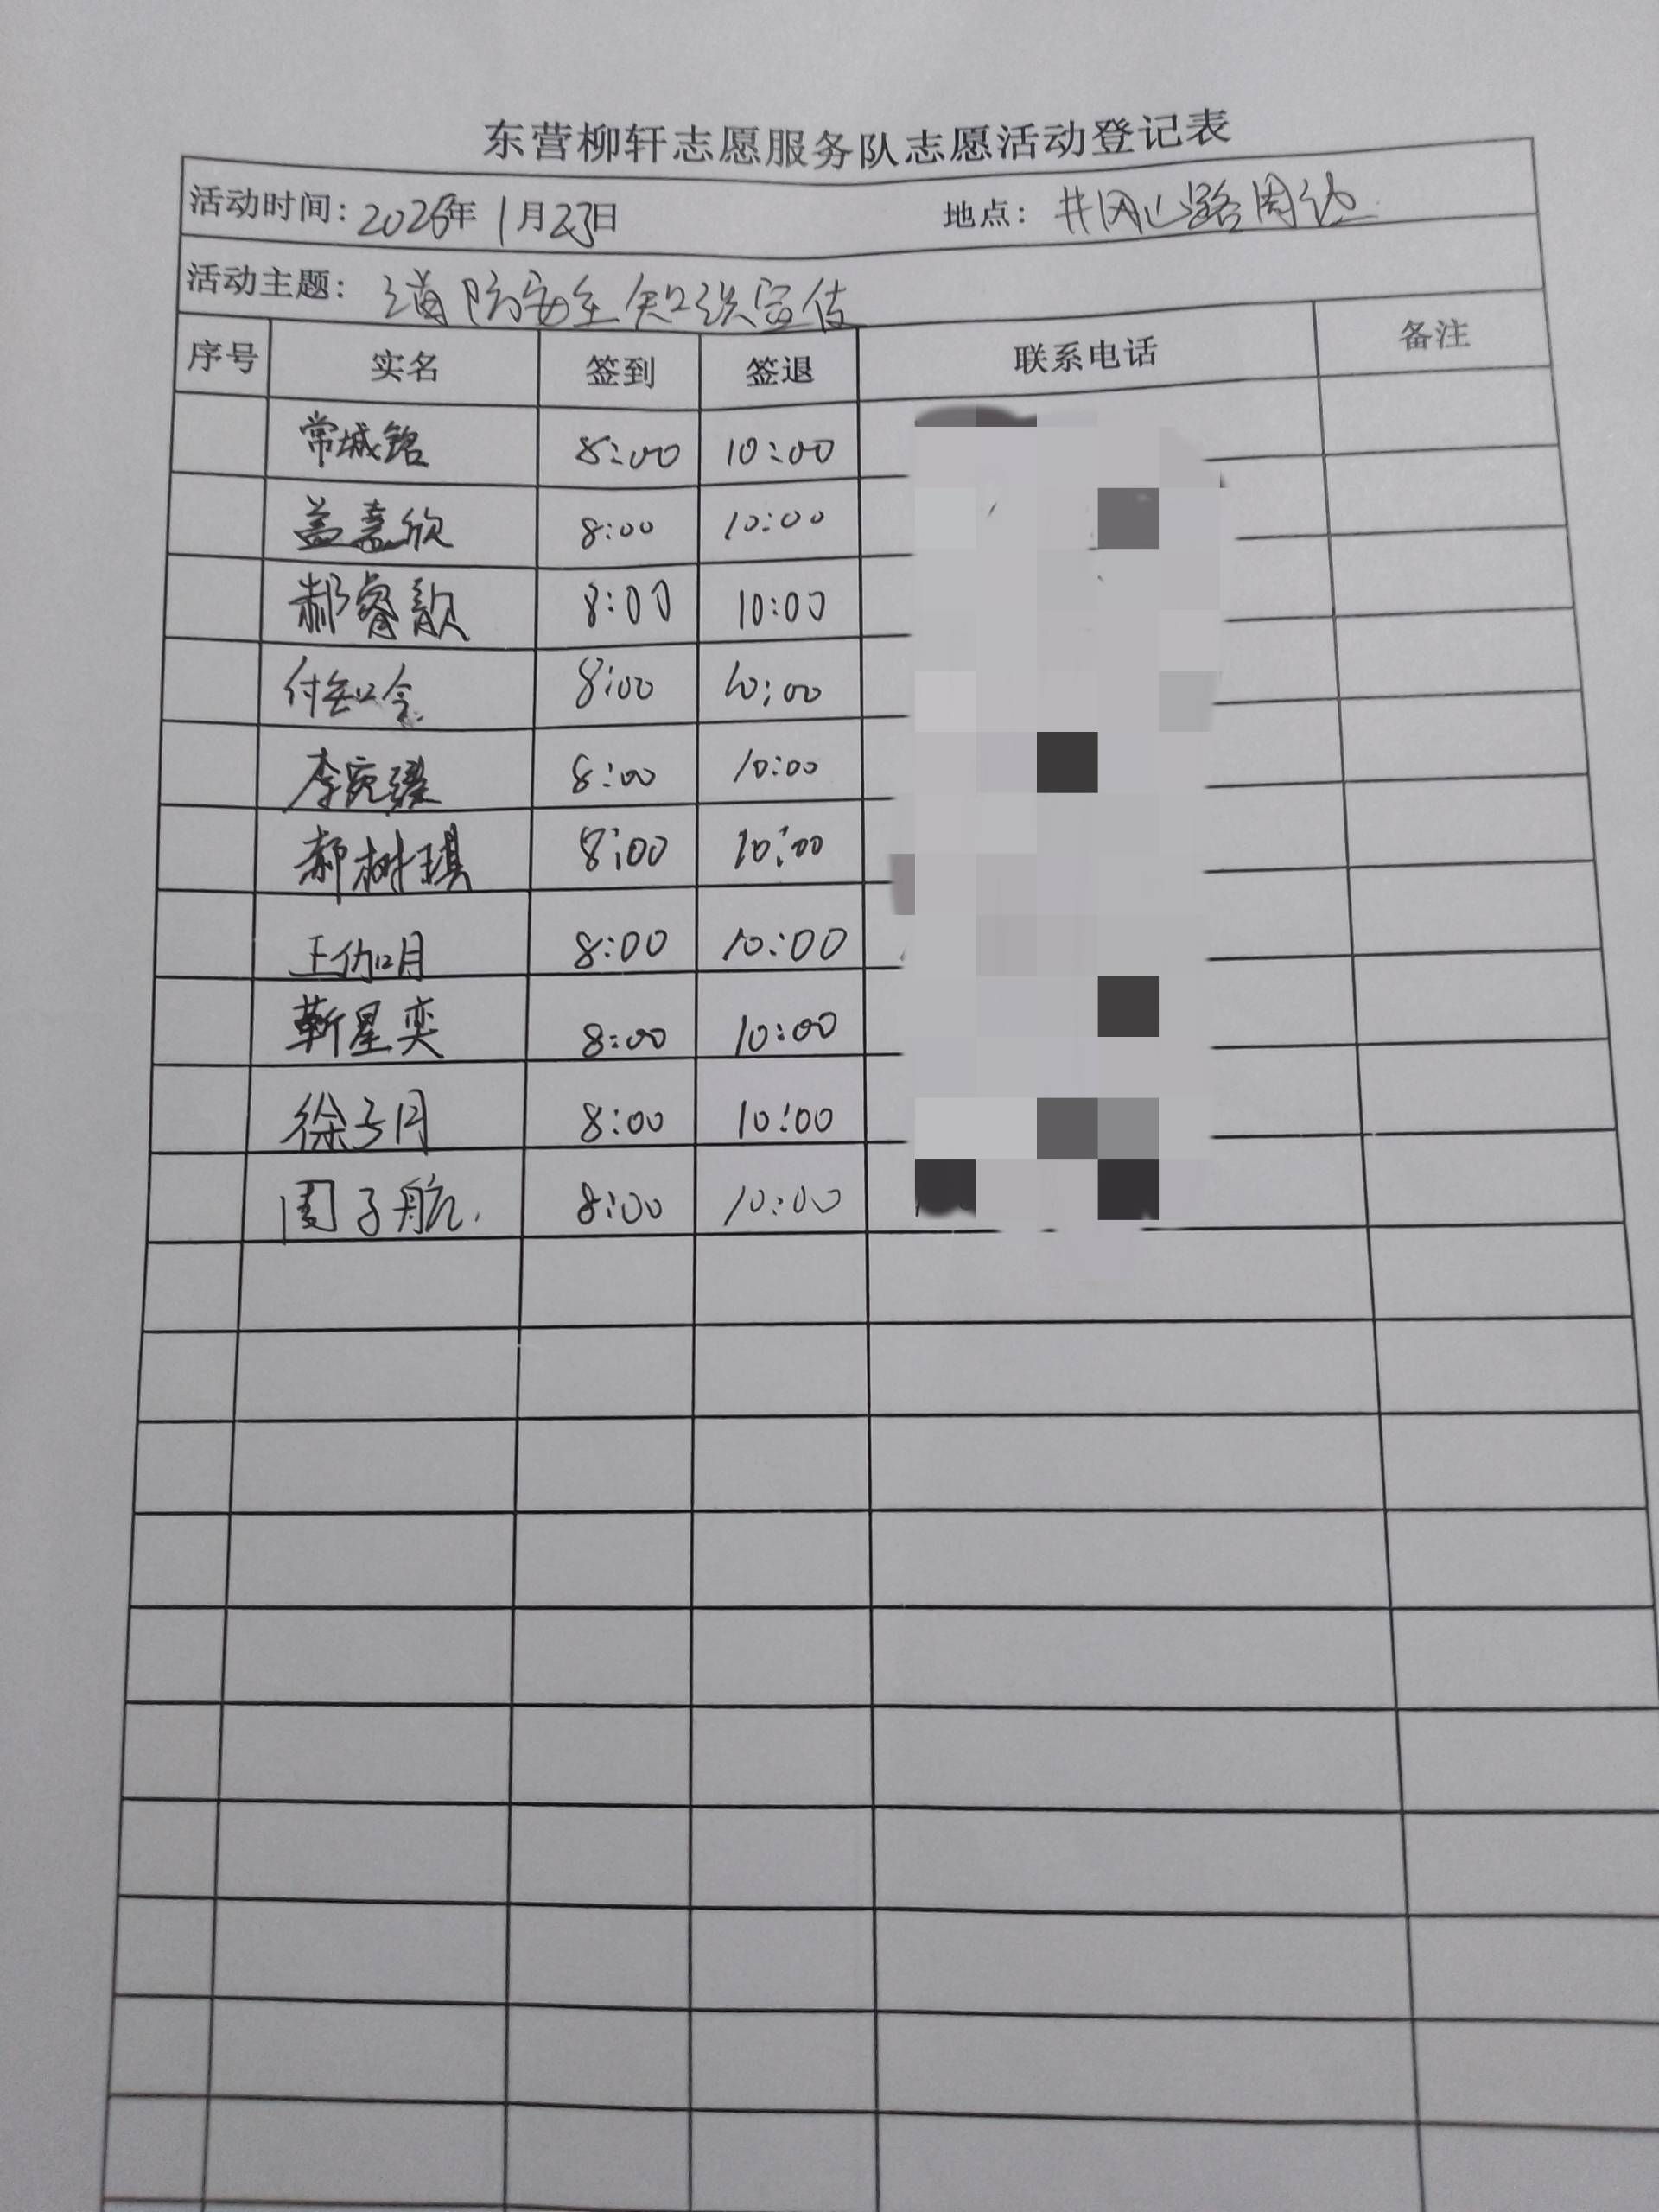 东营柳轩志愿服务队志愿活动登记表
活动时间：2026年1月23日 地点：井冈山路周边
活动主题：消防安全知识宣传
序号 实名 签到 签退 联系电话 备注
常城铭 8:00 10:00
盖嘉欣 8:00 10:00
郝睿歆 8:00 10:00
付知今 8:00 10:00
李宛臻 8:00 10:00
郝树琪 8:00 10:00
王伽月 8:00 10:00
靳星奕 8:00 10:00
徐子月 8:00 10:00
周子航 8:00 10:00